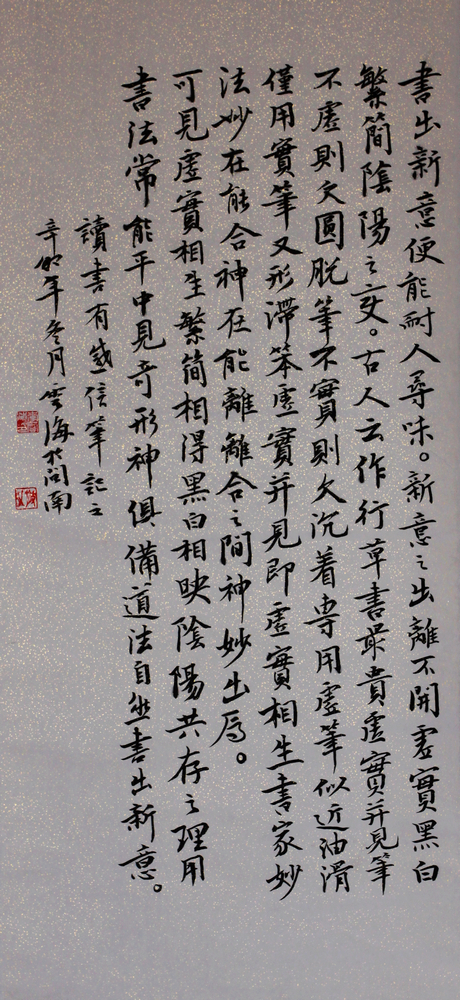 書出新意便能耐人尋味。新意之出離不開虛實黑白
繁簡陰陽之变。古人云作行草書最貴虛實并見筆
不虛則欠圓脫筆不實則欠沉着専用虛筆似近油滑
僅用實筆又形滯笨虛實并見即虛實相生書家妙
法妙在能合神在能離離合之間神妙出焉。
可見虛實相生繁简相得黑白相映陰陽共存之理用
書法常能平中見奇形神俱備道法自然書出新意。
讀書有感信筆記之
辛卯年冬月雲海於闽南